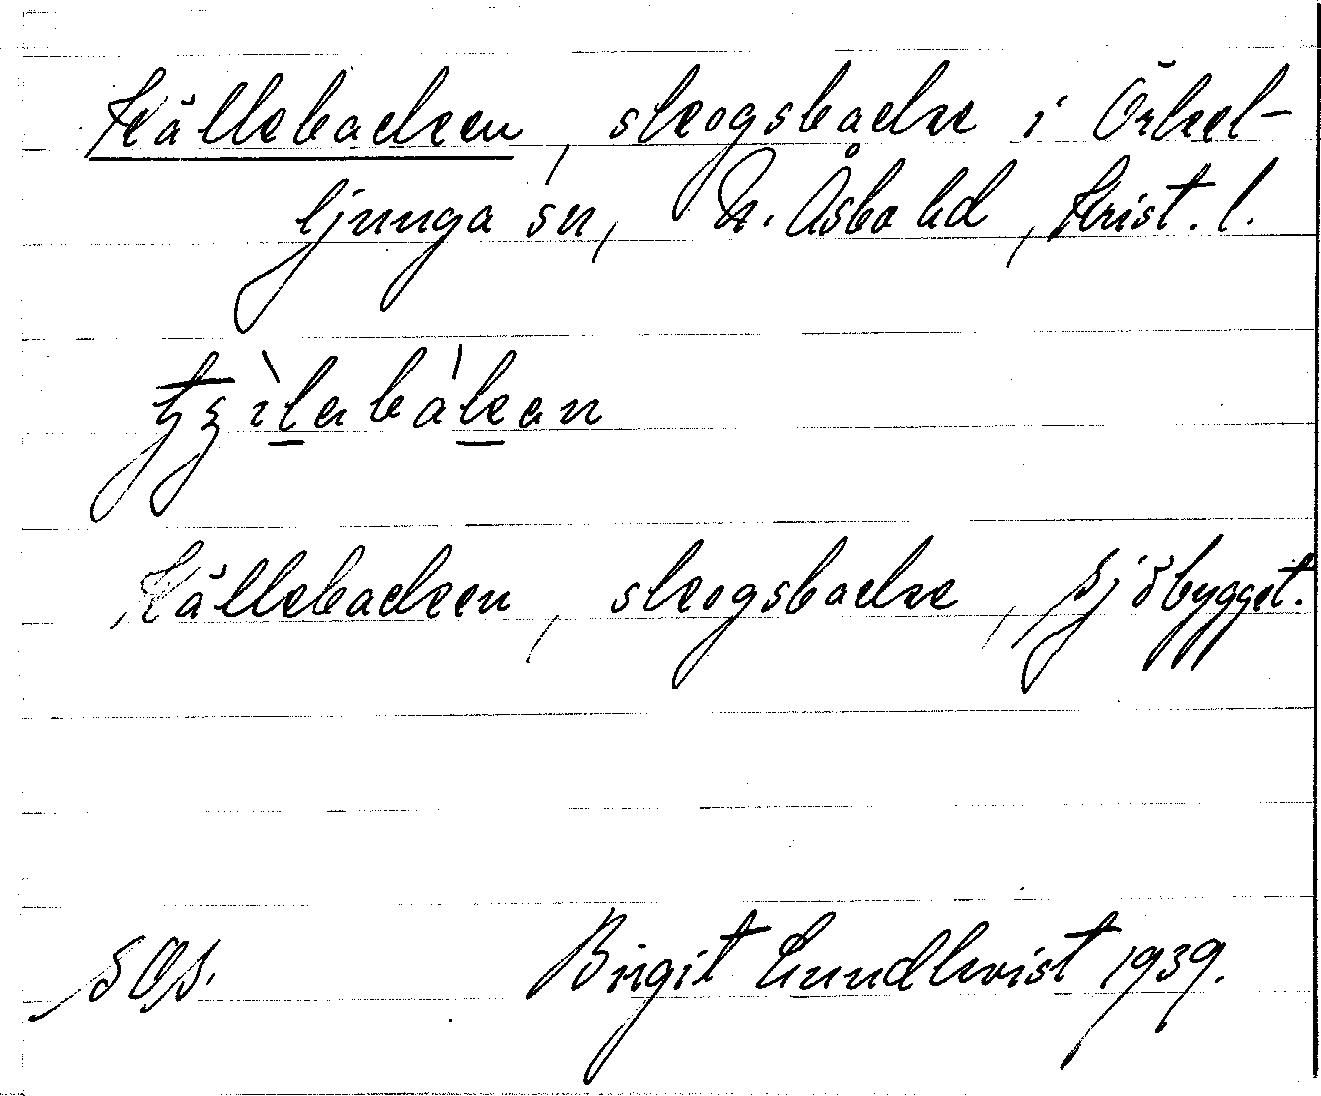 Källebacken, skogsbacke i Örkel-
ljunga sn, N. Åsbo hd, Krist. l.
Källebacken, skogsbacke, Sjöbygget.
Birgit Lundkvist 1939.